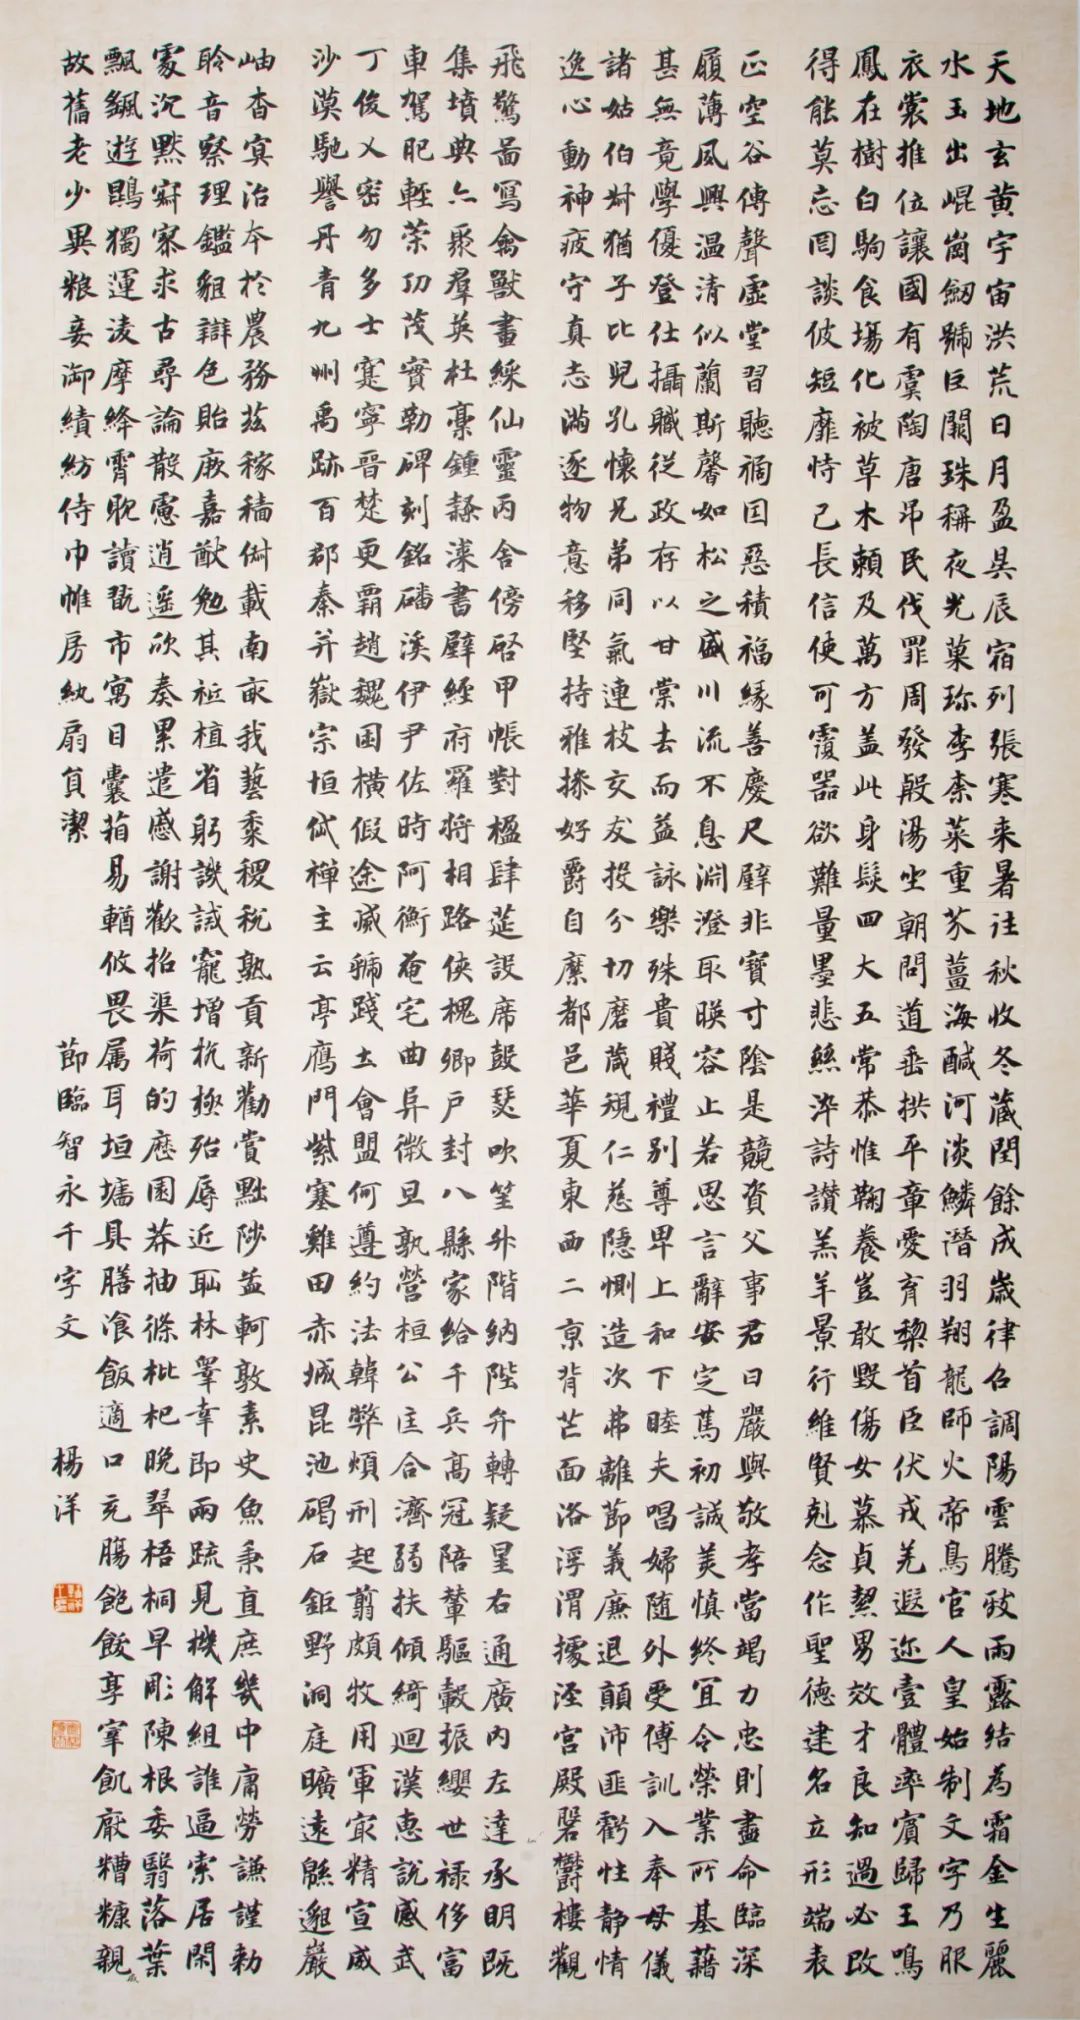 天地玄黄宇宙洪荒日月盈昃辰宿列張寒来暑往秋收冬蔵閏餘成歲律召調陽雲騰致雨露結為霜金生麗
水玉出崐崗劒號巨闕珠稱夜光菓珍李柰菜重芥薑海醎河淡鱗潛羽翔龍師火帝鳥官人皇始制文字乃服
衣裳推位讓國有虞陶唐吊民伐罪周發殷湯坐朝問道垂拱平章愛育黎首臣伏戎羌遐迩壹體率賓歸王鳴
鳳在樹白駒食場化被草木賴及萬方盖此身髮四大五常恭惟鞠養豈敢毀傷女慕貞絜男效才良知過必改
得能莫忘罔談彼短靡恃己長信使可覆器欲難量墨悲絲淬詩讃羔羊景行維賢剋念作聖徳建名立形端表
正空谷傳聲虛堂習聽禍因惡積福緣善慶尺璧非寶寸陰是競資父事君曰嚴與敬孝當竭力忠則盡命臨深
履薄夙興温清似蘭斯馨如松之盛川流不息淵澄取暎容止若思言辭安定篤初誠美慎終宜令榮業所基藉
甚無竟學優登仕攝職従政存以甘棠去而益詠樂殊貴賤禮別尊卑上和下睦夫唱婦随外受傅訓入奉母儀
諸姑伯叔猶子比兒孔懷兄弟同氣連枝交友投分切磨箴規仁慈隱惻造次弗離節義廉退顛沛匪虧性静情
逸心動神疲守真志滿逐物意移堅持雅操好爵自縻都邑華夏東西二京背芒面洛浮渭據涇宮殿磐欝樓觀
飛驚啚寫禽獸畫綵仙靈丙舍傍啓甲帳對楹肆莚設席鼓瑟吹笙升階納陛弁轉疑星右通廣内左達承明既
集墳典亦聚羣英杜稾鍾隷漆書壁經府羅將相路俠槐卿戶封八縣家給千兵高冠陪輦驅轂振纓世禄侈富
車駕肥輕策功茂實勒碑刻銘磻溪伊尹佐時阿衡奄宅曲阜微旦孰營桓公匡合濟弱扶傾綺迴漢惠說感武
丁俊乂密勿多士寔寧晉楚更霸趙魏困横假途滅虢踐土會盟何遵約法韓弊煩刑起翦頗牧用軍最精宣威
沙漠馳譽丹青九州禹跡百郡秦并嶽宗恒岱禅主云亭鴈門紫塞雞田赤城昆池碣石鉅野洞庭曠遠緜邈巖
岫杳冥治本於農務茲稼穡俶載南畝我藝黍稷稅熟貢新勸賞黜陟孟軻敦素史魚秉直庶幾中庸勞謙謹勅
聆音察理鑑貌辯色貽厥嘉猷勉其祗植省躬譏誡寵增抗極殆辱近恥林皋幸即兩疏見機解組誰逼索居閑
處沉默寂寥求古尋論散慮逍遙欣奏累遣慼謝歡招渠荷的歷園莽抽條枇杷晚翠梧桐早彫陳根委翳落葉
飄颻遊鵾獨運凌摩絳霄耽讀翫市寓目囊箱易輶攸畏属耳垣墻具膳飡飯適口充腸飽飫享宰飢厭糟糠親
故舊老少異粮妾御績紡侍巾帷房紈扇員潔
節臨智永千字文
楊洋